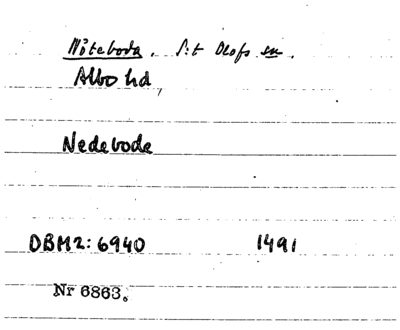 Nöteboda. S:t Olofs sn.
Albo hd,
Nedebode
DBM2:6940 1491
Nr 6863.